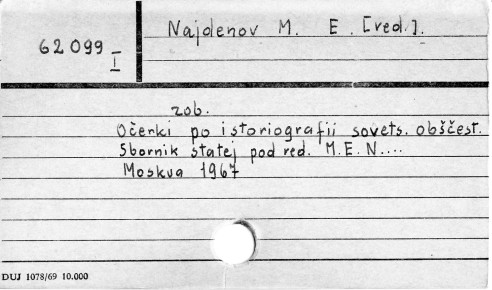 Najdenov M. E. [red.].
62 099 I
zob.
Očerki po istoriografii sovets. obščest.
Sbornik statej pod red. M.E.N....
Moskva 1967
DUJ 1078/69 10.000